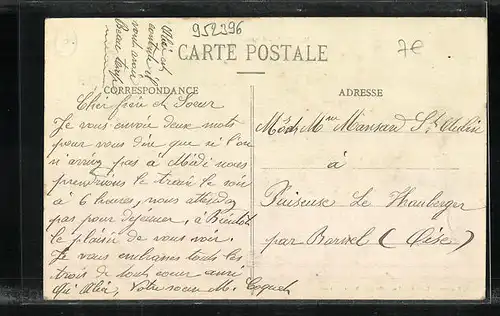 952296
7€
CARTE POSTALE
CORRESPONDANCE
ADRESSE
Cher frère et Soeur
Je vous envoie deux mots
pour vous dire que si l'on
n'arrive pas à Midi nous
prendrions le train le soir
à 6 heures, nous attendez
pas pour déjeuner, à Bientôt
le plaisir de vous voir.
Je vous embrasse tous les
trois de tout coeur ainsi
Votre soeur M. Coquet
Mansard St Aubin
à
Puiseux Le Hauberger
par Bornel (Oise)